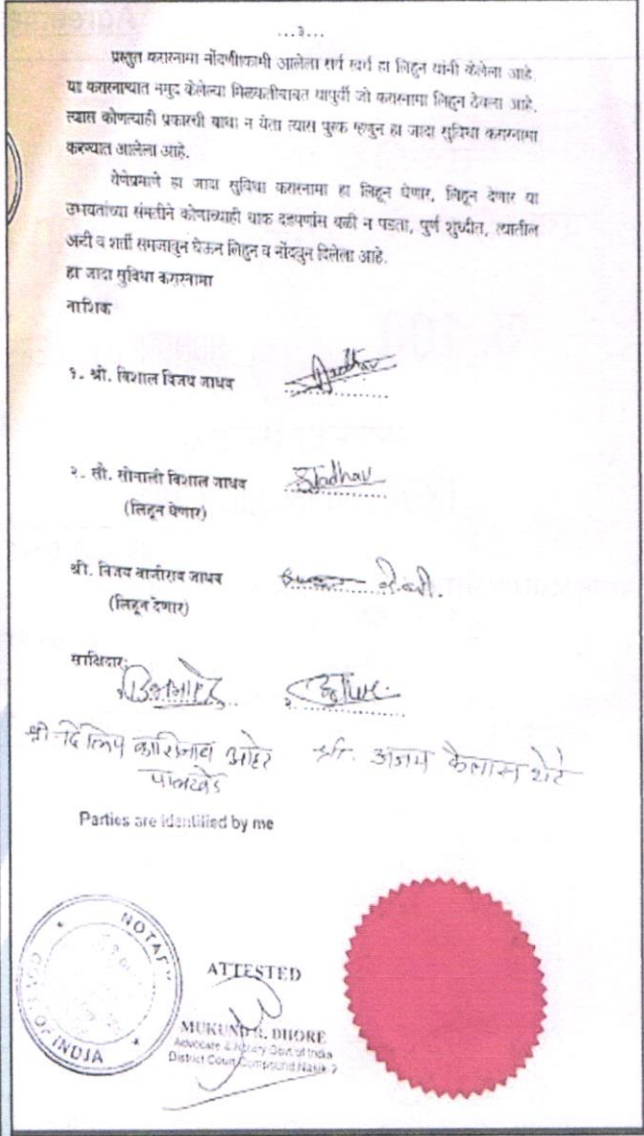 ...३...
प्रस्तुत करारनामा नोंदणीकामी आलेला सर्व खर्च हा लिहून यांनी केलेला आहे.
या करारनाम्यात नमुद केलेल्या मिळकतीबाबत यापुर्वी जो करारनामा लिहून ठेवला आहे.
त्यास कोणत्याही प्रकारची बाधा न येता त्यास पुरक म्हणुन हा जादा सुविधा करारनामा
करण्यात आलेला आहे.
येणेप्रमाणे हा जादा सुविधा करारनामा हा लिहून घेणार, लिहून देणार या
उभयतांच्या संमतीने कोणाच्याही धाक दडपणांस बळी न पडता, पुर्ण शुध्दीत, त्यातील
अटी व शर्ती समजावुन घेऊन लिहुन व नोंदवुन दिलेला आहे.
हा जादा सुविधा करारनामा
नाशिक
१. श्री. विशाल विजय जाधव
Jadhav
२. सौ. सोनाली विशाल जाधव
SJadhav
(लिहून घेणार)
श्री. विजय बाजीराव जाधव
(लिहून देणार)
साक्षिदार:
१ २
श्री दिलिप काशिनाथ आहेर श्री. अजय कैलास शेटे
पालखेड
Parties are identified by me
NOTARY
GOVT. OF INDIA
ATTESTED
MUKUND R. DHORE
Advocate & Notary Govt of India
District Court Compound Nasik 2